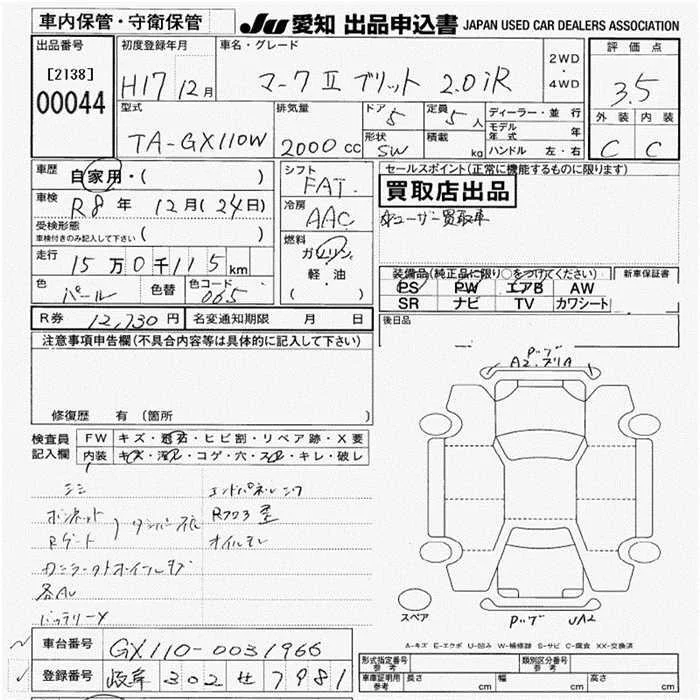 車内保管・守衛保管
JU 愛知 出品申込書 JAPAN USED CAR DEALERS ASSOCIATION
出品番号
[2138]
00044
初度登録年月
H17 12月
車名・グレード
マークⅡブリット 2.0iR
2WD
・
4WD
評価点
3.5
外装 内装
C C
型式
TA-GX110W
排気量
2000 cc
ドア 5
定員 5人
形状 SW
積載 kg
ディーラー・並行
モデル年式 年
ハンドル 左・右
車歴
自家用・( )
車検
R8年 12月(24日)
受検形態
車検付きのみ記入して下さい ( )
走行
15万0千115km
色 パール 色替 色コード 065
シフト
FAT
冷房
AAC
燃料
ガソリン
軽・油
( )
セールスポイント(正常に機能するものに限ります)
買取店出品
ユーザー買取車
装備品(純正品に限り○をつけてください)
新車保証書
PS PW エアB AW
SR ナビ TV カワシート
後日品
R券 12,730円 名変通知期限 月 日
注意事項申告欄(不具合内容等は具体的に記入して下さい)
修復歴 有(箇所 )
検査員
記入欄
FW キズ・飛石・ヒビ割・リペア跡・X要
内装 キズ・汚れ・コゲ・穴・スレ・キレ・破レ
ボンネット
Rゲート
オイルモレ
各AU
バッテリー
A2
スペア
A-キズ E-エクボ U-凹み W-補修跡 S-サビ C-腐食 XX-交換済
車台番号
GX110-0031966
登録番号
岐阜 302 せ 7981
形式指定番号
参考
類別区分番号
参考
車庫証明用
参考
長さ cm 幅 cm 高さ cm